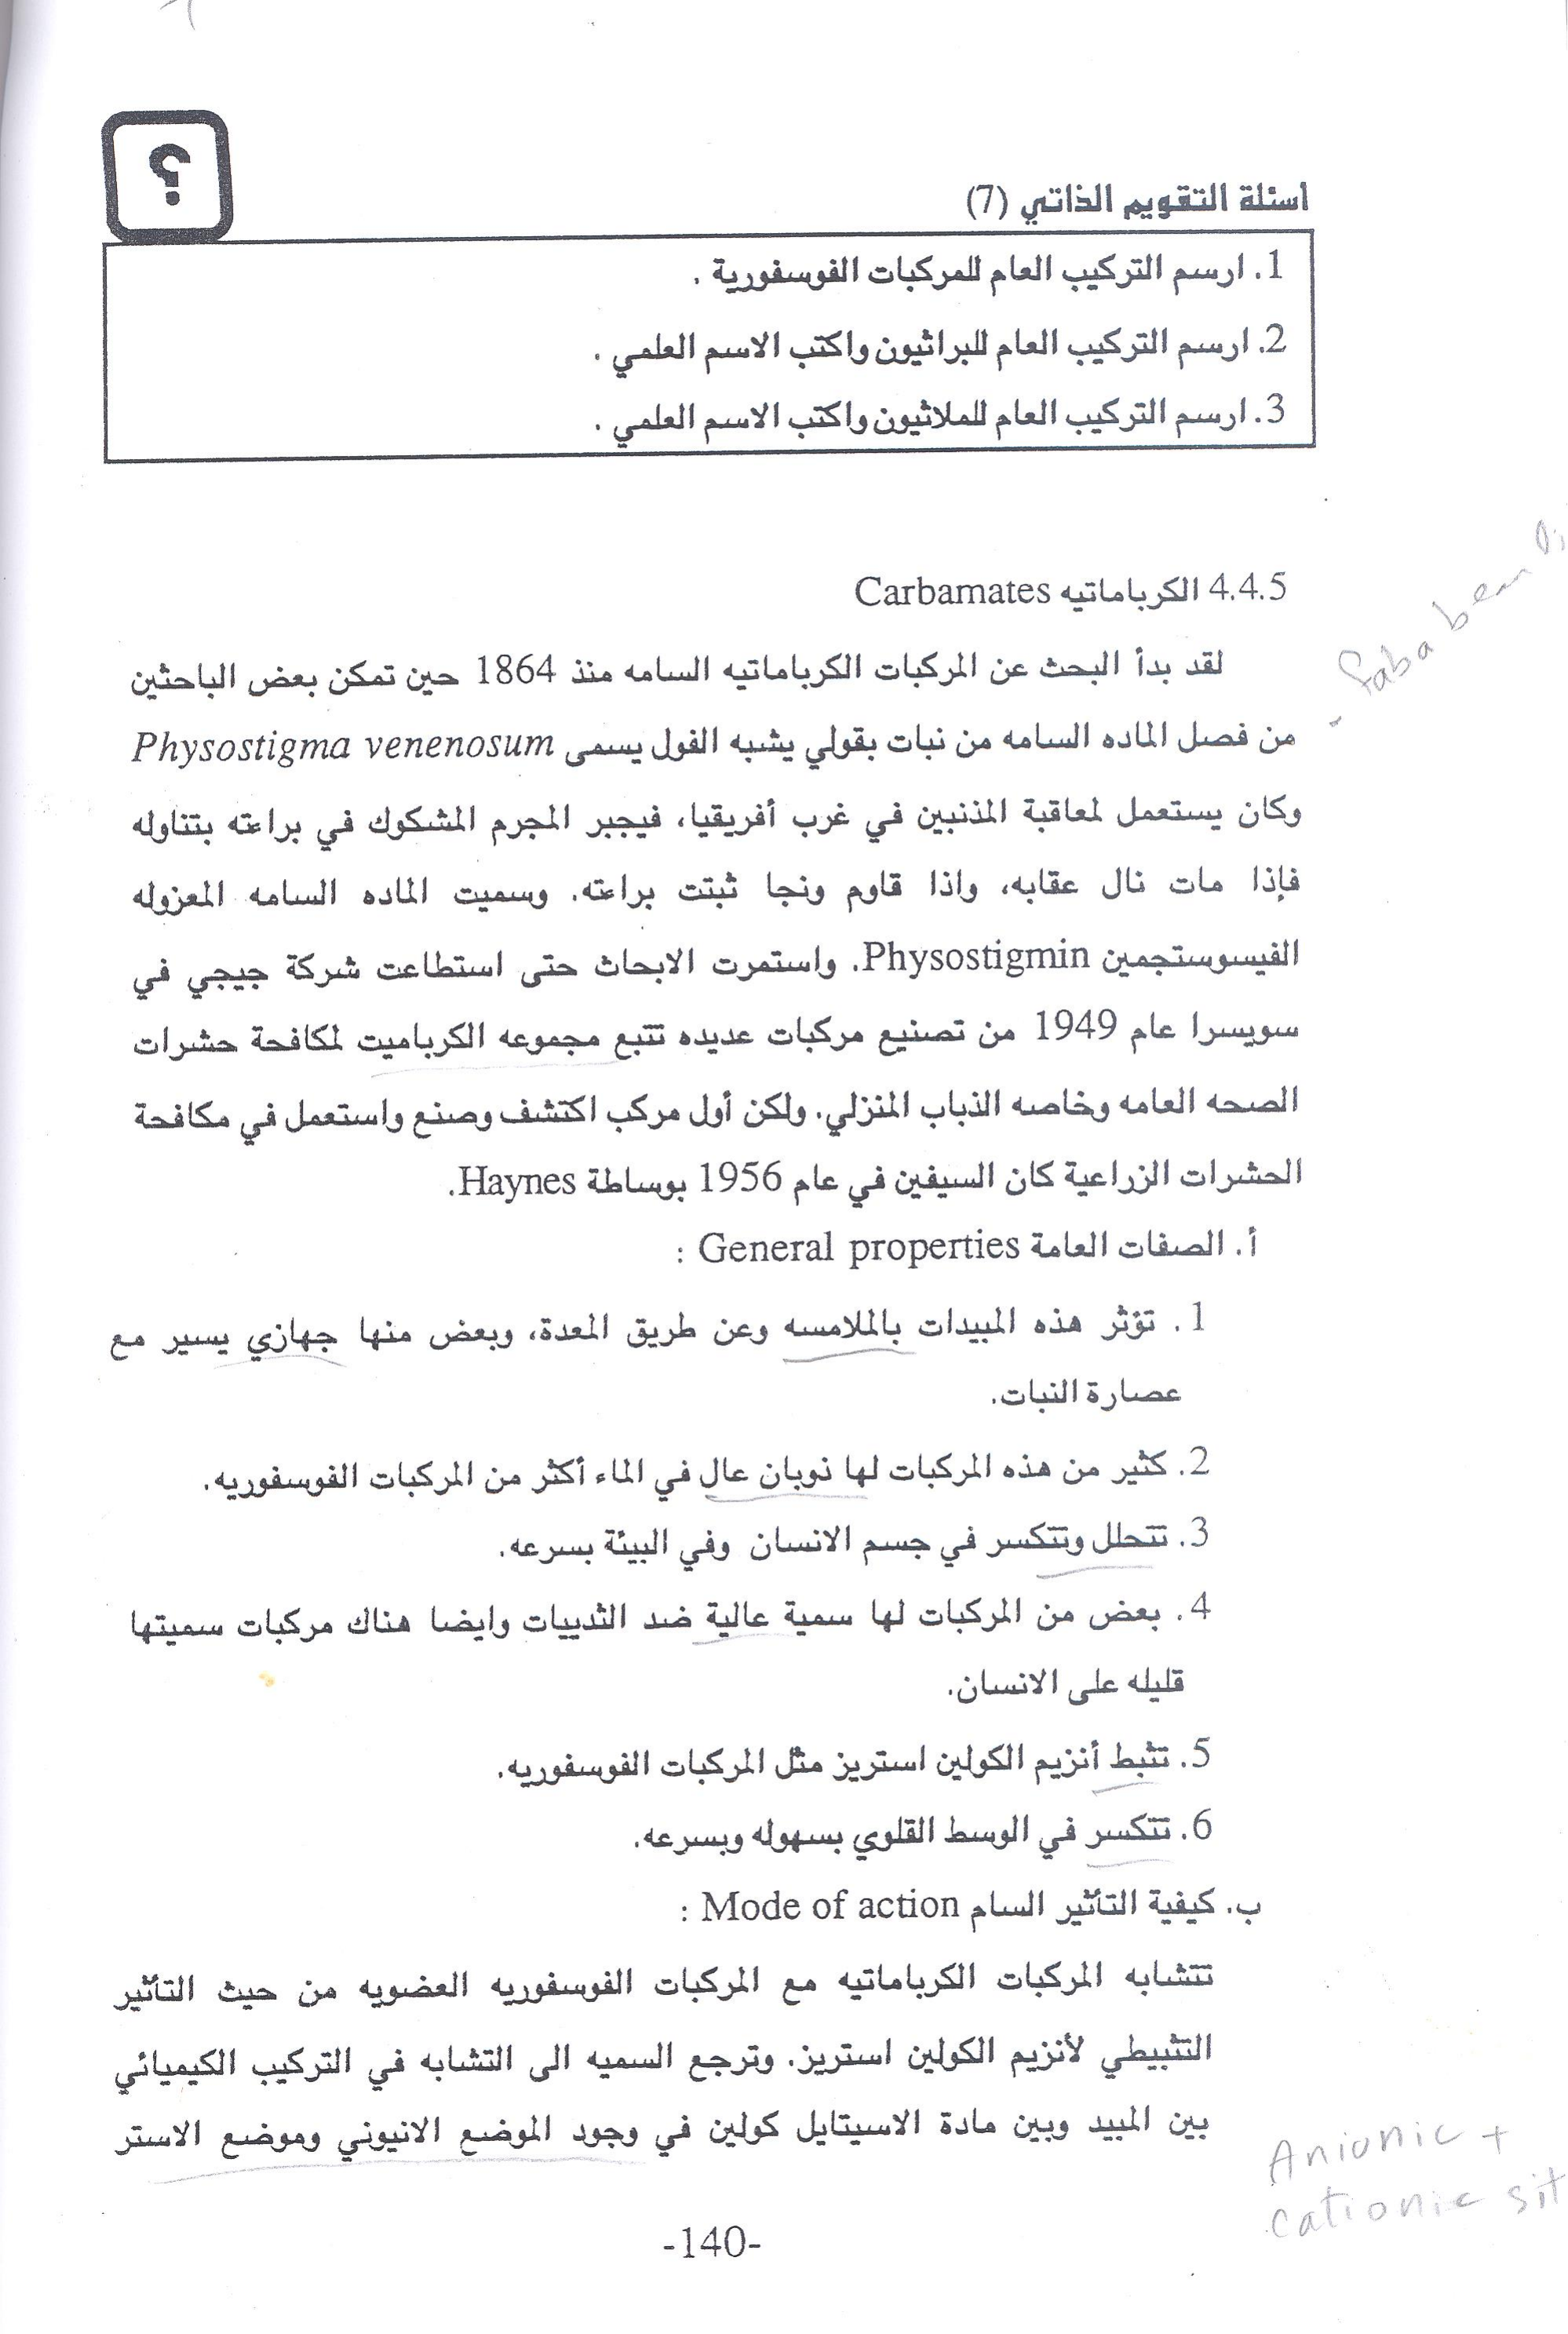 ؟
اسئلة التقويم الذاتي (7)
1. ارسم التركيب العام للمركبات الفوسفورية .
2. ارسم التركيب العام للبراثيون واكتب الاسم العلمي .
3. ارسم التركيب العام للملاثيون واكتب الاسم العلمي .
4.4.5 الكرباماتيه Carbamates
faba bean
لقد بدأ البحث عن المركبات الكرباماتيه السامه منذ 1864 حين تمكن بعض الباحثين
من فصل الماده السامه من نبات بقولي يشبه الفول يسمى Physostigma venenosum
وكان يستعمل لمعاقبة المذنبين في غرب أفريقيا، فيجبر المجرم المشكوك في براءته بتناوله
فإذا مات نال عقابه، واذا قاوم ونجا ثبتت براءته. وسميت الماده السامه المعزوله
الفيسوستجمين Physostigmin. واستمرت الابحاث حتى استطاعت شركة جيجي في
سويسرا عام 1949 من تصنيع مركبات عديده تتبع مجموعه الكرباميت لمكافحة حشرات
الصحه العامه وخاصه الذباب المنزلي. ولكن أول مركب اكتشف وصنع واستعمل في مكافحة
الحشرات الزراعية كان السيفين في عام 1956 بوساطة Haynes.
أ. الصفات العامة General properties :
1. تؤثر هذه المبيدات بالملامسه وعن طريق المعدة، وبعض منها جهازي يسير مع
عصارة النبات.
2. كثير من هذه المركبات لها نوبان عال في الماء أكثر من المركبات الفوسفوريه.
3. تتحلل وتتكسر في جسم الانسان وفي البيئة بسرعه.
4. بعض من المركبات لها سمية عالية ضد الثدييات وايضا هناك مركبات سميتها
قليله على الانسان.
5. تثبط أنزيم الكولين استريز مثل المركبات الفوسفوريه.
6. تتكسر في الوسط القلوي بسهوله وبسرعه.
ب. كيفية التأثير السام Mode of action :
تتشابه المركبات الكرباماتيه مع المركبات الفوسفوريه العضويه من حيث التأثير
التثبيطي لأنزيم الكولين استريز. وترجع السميه الى التشابه في التركيب الكيميائي
بين المبيد وبين مادة الاسيتايل كولين في وجود الموضع الانيوني وموضع الاستر
Anionic +
cationic sit
-140-